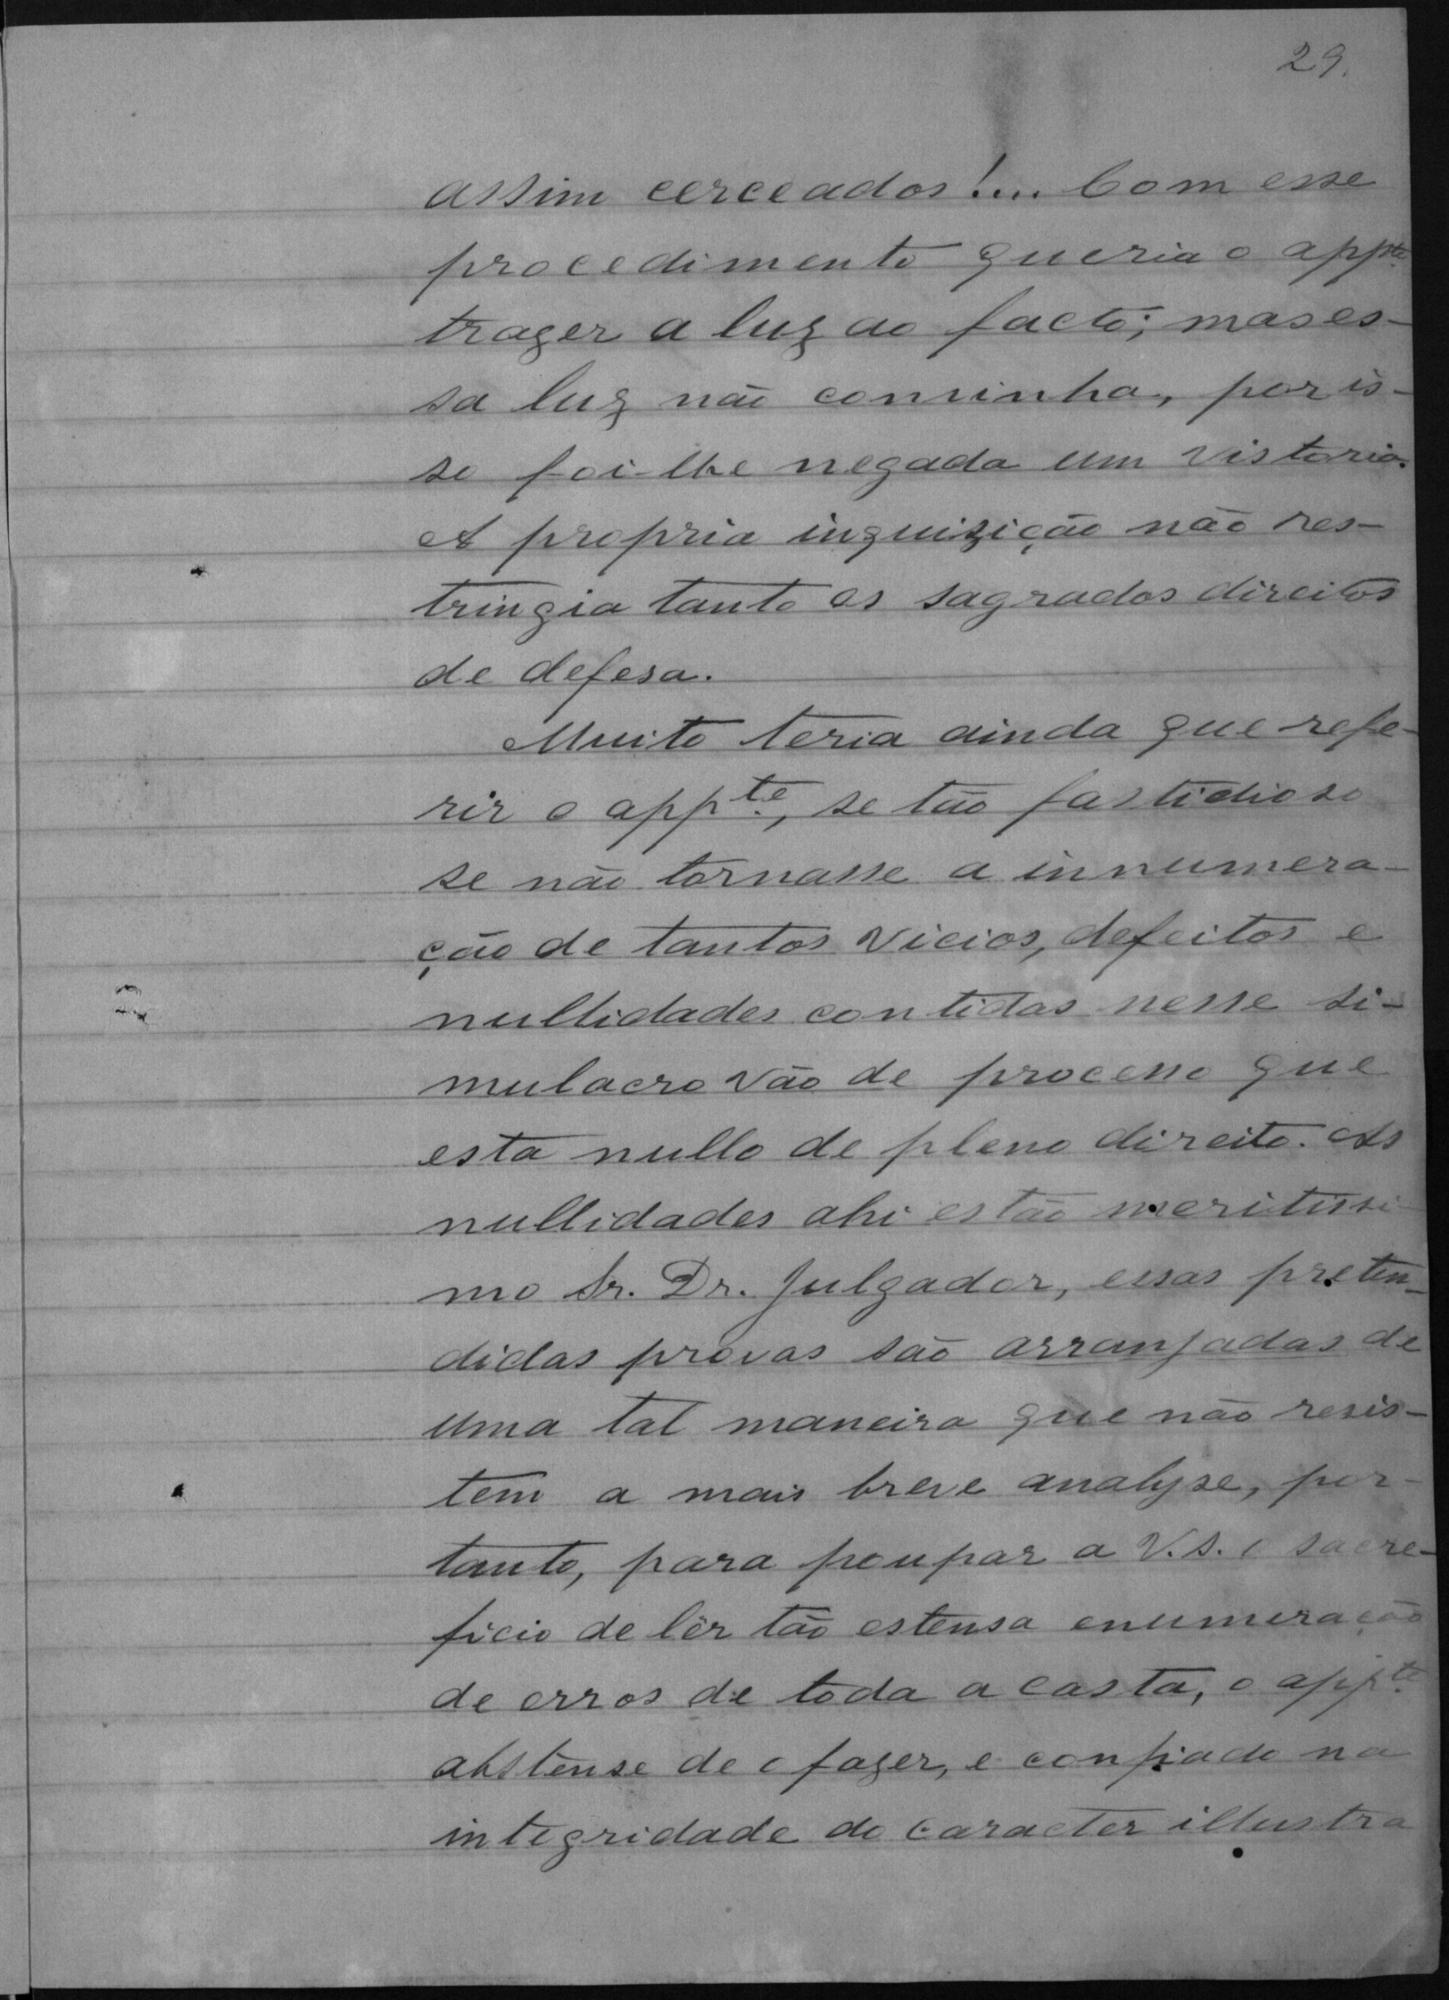 29.
assim cerceados!... Com esse
procedimento queria o appte.
trazer a luz ao facto; mas es-
sa luz não convinha, por is-
so foi-lhe negada um vistoria.
A propria inquizição não res-
tringia tanto os sagrados direitos
de defesa.
Muito teria ainda que refe-
rir o appte., se tão fastidioso
se não tornasse a innumera-
ção de tantos vicios, defeitos e
nullidades contidas nesse si-
mulacro vão de processo que
esta nullo de pleno direito. As
nullidades ahi estão meritissi
mo Sr. Dr. Julgador, essas preten-
didas provas são arranjadas de
uma tal maneira que não resis-
tem a mais breve analyse, por-
tanto, para poupar a V.S. o sacre-
ficio de lêr tão estensa enumeração
de erros de toda a casta, o appte.
abstense de o fazer, e confiado na
integridade do caracter illustra